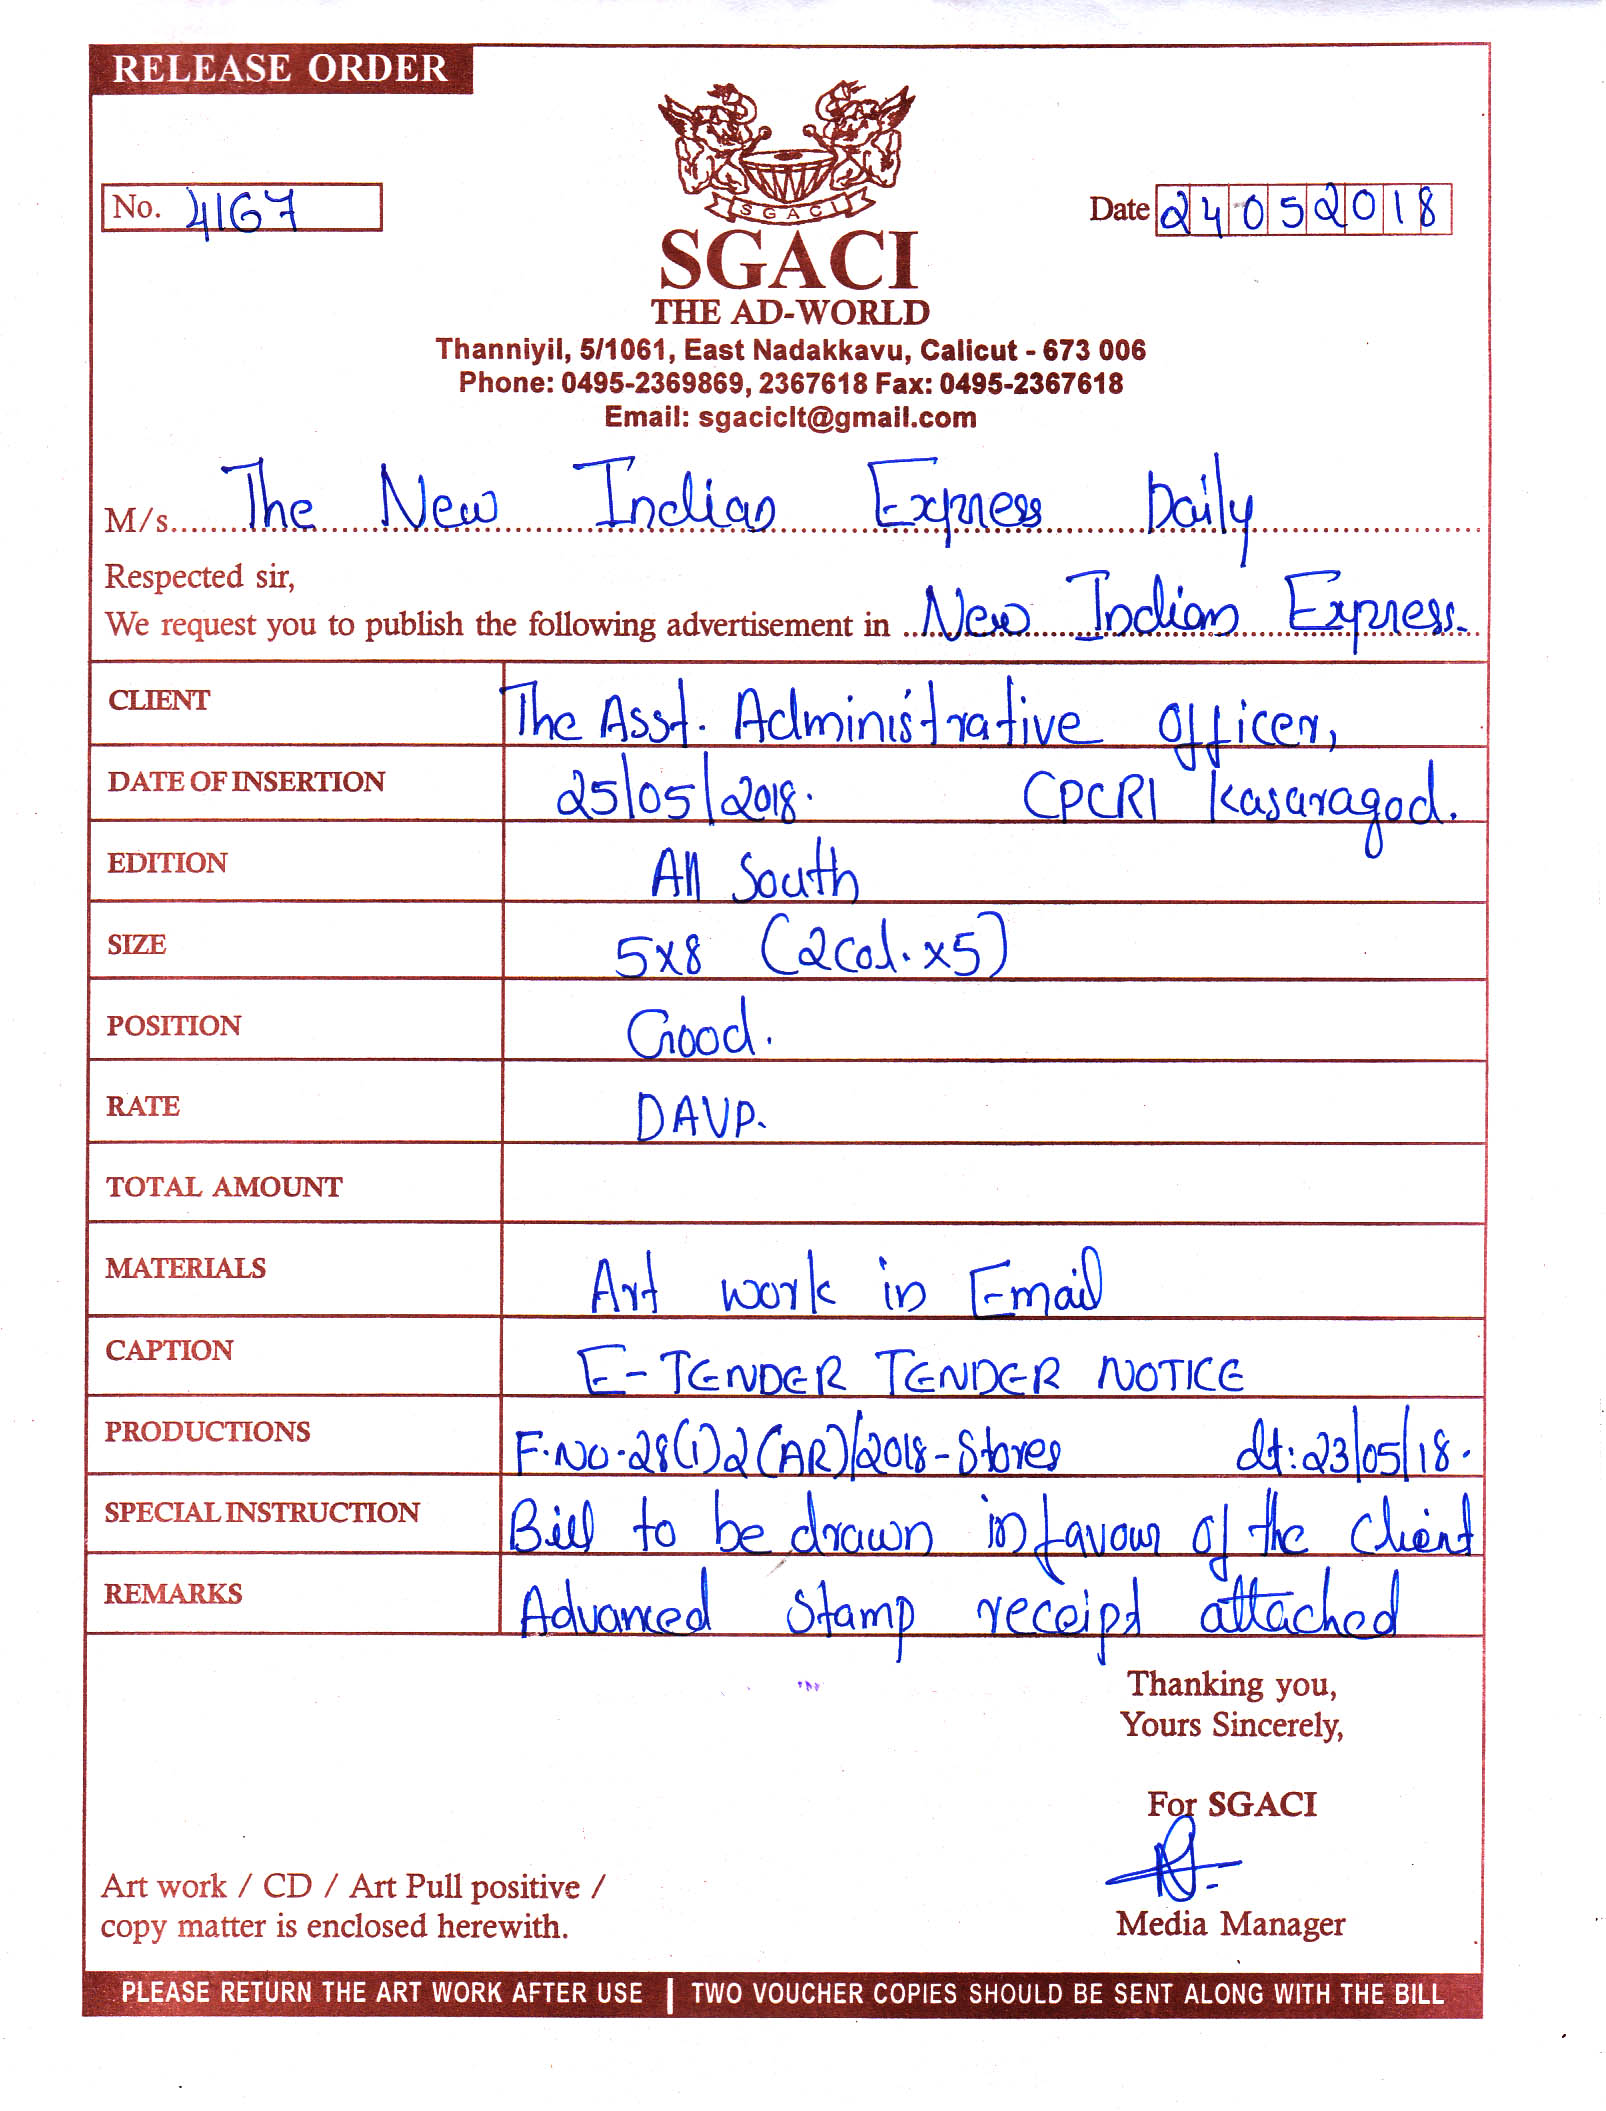 RELEASE ORDER
No. 4167
Date 24052018
SGACI
SGACI
THE AD-WORLD
Thanniyil, 5/1061, East Nadakkavu, Calicut - 673 006
Phone: 0495-2369869, 2367618 Fax: 0495-2367618
Email: sgaciclt@gmail.com
M/s. The New Indian Express Daily
Respected sir,
We request you to publish the following advertisement in New Indian Express.
CLIENT The Asst. Administrative Officer,
DATE OF INSERTION 25/05/2018. CPCRI Kasaragod.
EDITION All South
SIZE 5x8 (2Col. x5)
POSITION Good.
RATE DAVP.
TOTAL AMOUNT
MATERIALS Art work in Email
CAPTION E-TENDER TENDER NOTICE
PRODUCTIONS F.NO.28(1)2(AR)/2018-Stores dt:23/05/18.
SPECIAL INSTRUCTION Bill to be drawn in favour of the Client
REMARKS Advanced Stamp receipt attached
Thanking you,
Yours Sincerely,
For SGACI
Art work / CD / Art Pull positive /
copy matter is enclosed herewith.
Media Manager
PLEASE RETURN THE ART WORK AFTER USE | TWO VOUCHER COPIES SHOULD BE SENT ALONG WITH THE BILL